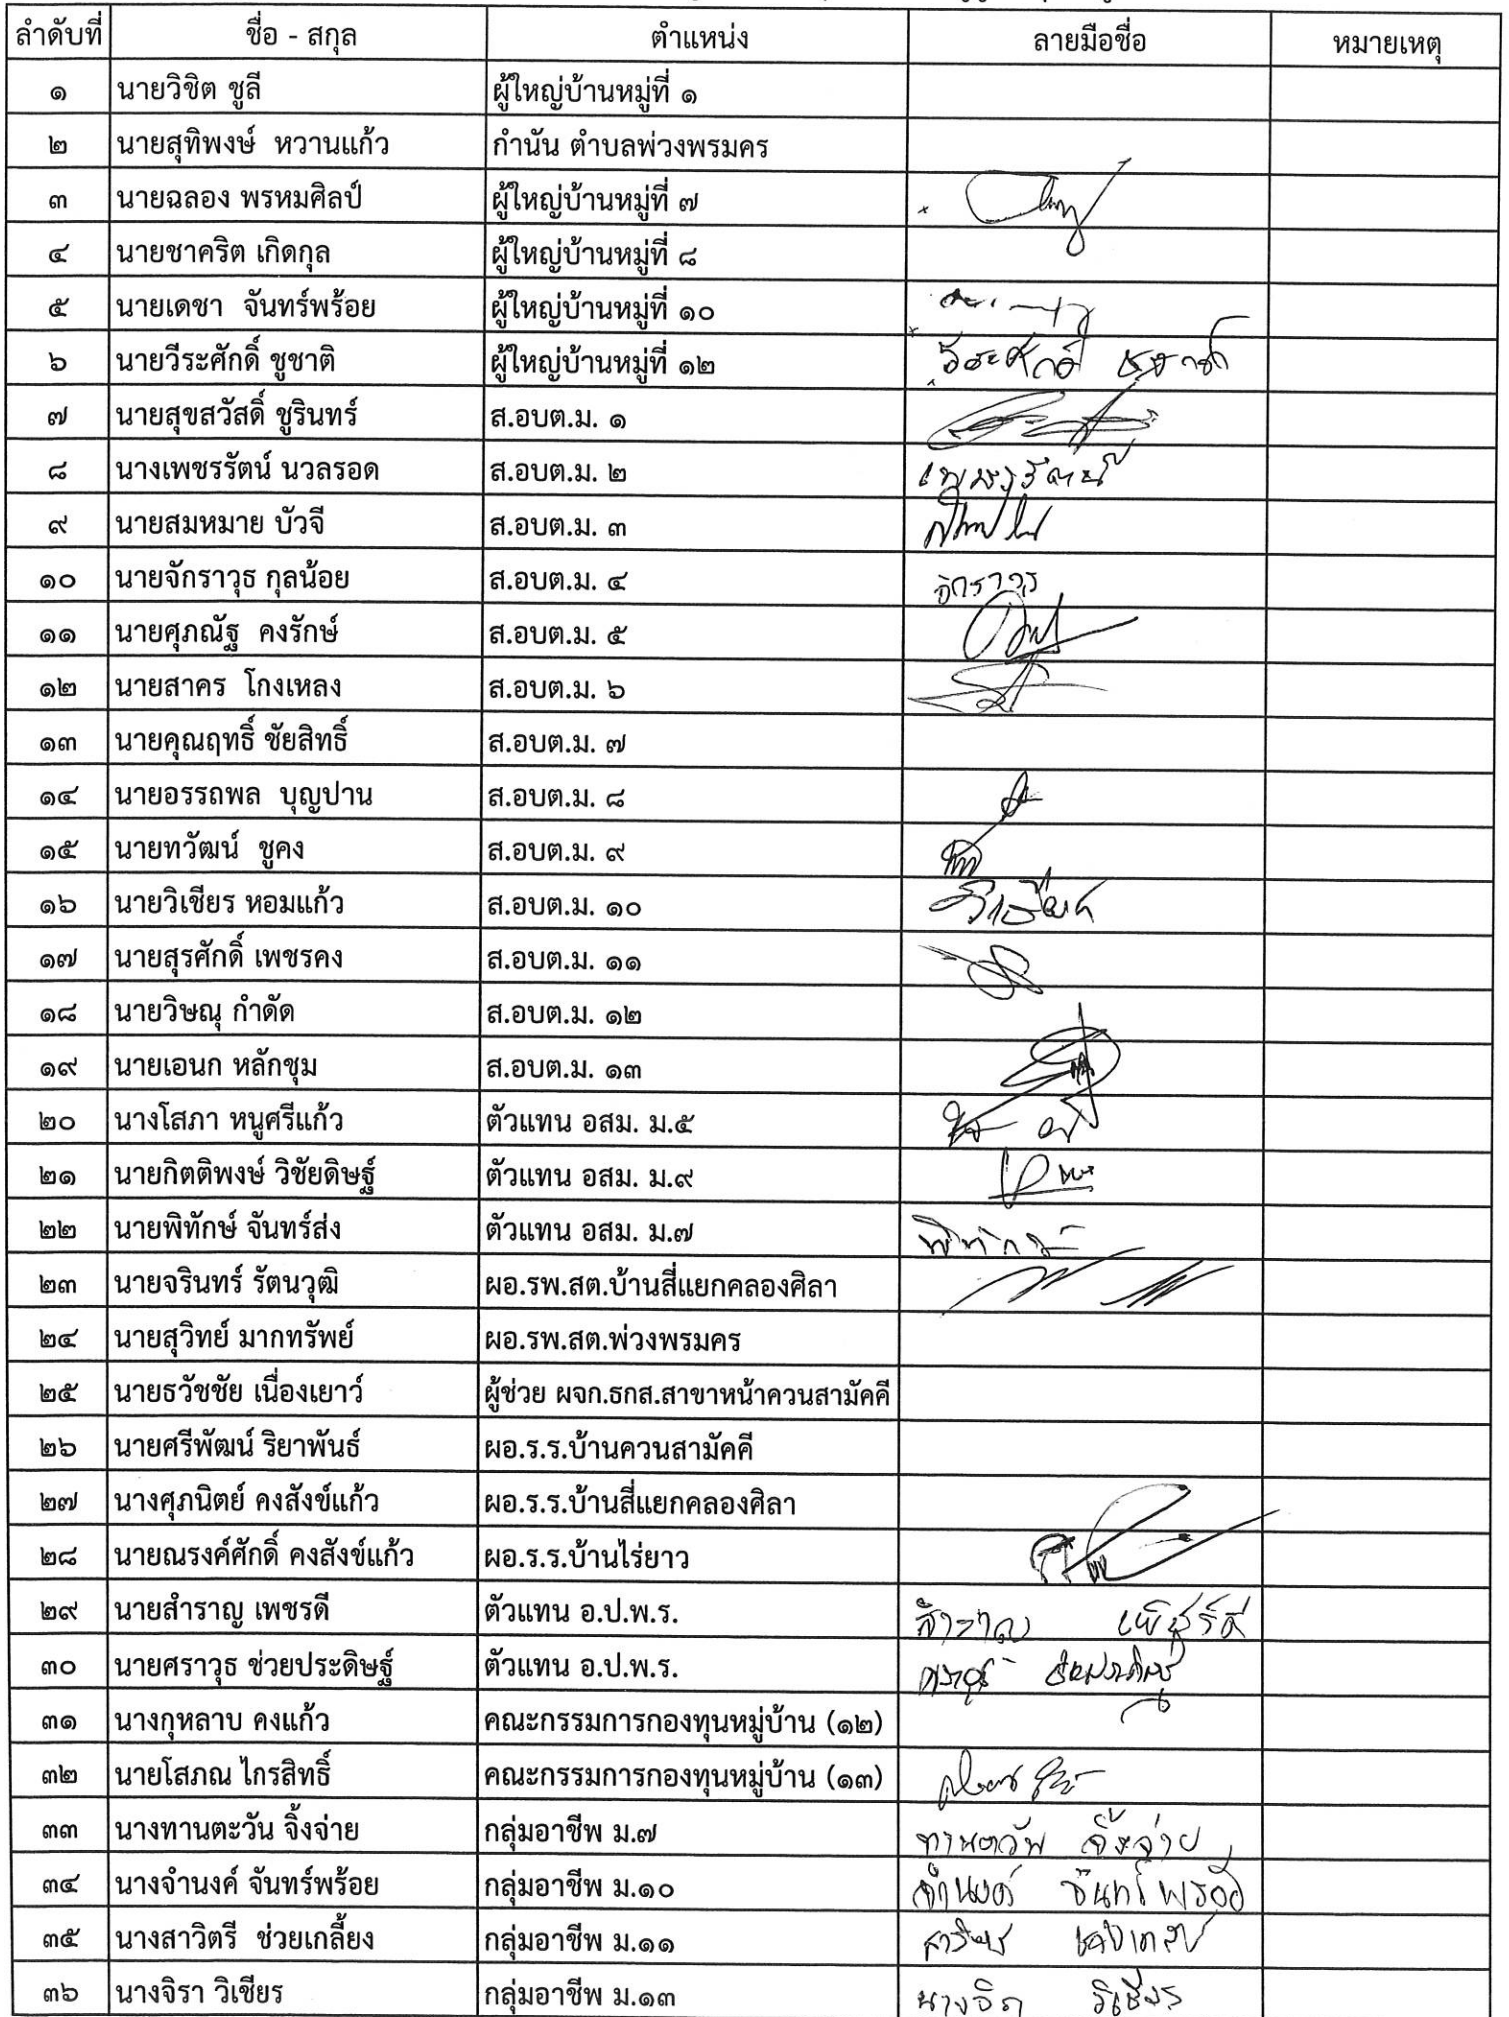 ลำดับที่ ชื่อ - สกุล ตำแหน่ง ลายมือชื่อ หมายเหตุ
๑ นายวิชิต ชูลี ผู้ใหญ่บ้านหมู่ที่ ๑
๒ นายสุทิพงษ์ หวานแก้ว กำนัน ตำบลพ่วงพรมคร
๓ นายฉลอง พรหมศิลป์ ผู้ใหญ่บ้านหมู่ที่ ๗
๔ นายชาคริต เกิดกุล ผู้ใหญ่บ้านหมู่ที่ ๘
๕ นายเดชา จันทร์พร้อย ผู้ใหญ่บ้านหมู่ที่ ๑๐
๖ นายวีระศักดิ์ ชูชาติ ผู้ใหญ่บ้านหมู่ที่ ๑๒ วีระศักดิ์ ชูชาติ
๗ นายสุขสวัสดิ์ ชูรินทร์ ส.อบต.ม. ๑
๘ นางเพชรรัตน์ นวลรอด ส.อบต.ม. ๒ เพชรรัตน์
๙ นายสมหมาย บัวจี ส.อบต.ม. ๓
๑๐ นายจักราวุธ กุลน้อย ส.อบต.ม. ๔ จักราวุธ
๑๑ นายศุภณัฐ คงรักษ์ ส.อบต.ม. ๕
๑๒ นายสาคร โกงเหลง ส.อบต.ม. ๖
๑๓ นายคุณฤทธิ์ ชัยสิทธิ์ ส.อบต.ม. ๗
๑๔ นายอรรถพล บุญปาน ส.อบต.ม. ๘
๑๕ นายทวัฒน์ ชูคง ส.อบต.ม. ๙
๑๖ นายวิเชียร หอมแก้ว ส.อบต.ม. ๑๐ วิเชียร
๑๗ นายสุรศักดิ์ เพชรคง ส.อบต.ม. ๑๑
๑๘ นายวิษณุ กำดัด ส.อบต.ม. ๑๒
๑๙ นายเอนก หลักชุม ส.อบต.ม. ๑๓
๒๐ นางโสภา หนูศรีแก้ว ตัวแทน อสม. ม.๕
๒๑ นายกิตติพงษ์ วิชัยดิษฐ์ ตัวแทน อสม. ม.๙
๒๒ นายพิทักษ์ จันทร์ส่ง ตัวแทน อสม. ม.๗ พิทักษ์
๒๓ นายจรินทร์ รัตนวุฒิ ผอ.รพ.สต.บ้านสี่แยกคลองศิลา
๒๔ นายสุวิทย์ มากทรัพย์ ผอ.รพ.สต.พ่วงพรมคร
๒๕ นายธวัชชัย เนื่องเยาว์ ผู้ช่วย ผจก.ธกส.สาขาหน้าควนสามัคคี
๒๖ นายศรีพัฒน์ ริยาพันธ์ ผอ.ร.ร.บ้านควนสามัคคี
๒๗ นางศุภนิตย์ คงสังข์แก้ว ผอ.ร.ร.บ้านสี่แยกคลองศิลา
๒๘ นายณรงค์ศักดิ์ คงสังข์แก้ว ผอ.ร.ร.บ้านไร่ยาว
๒๙ นายสำราญ เพชรดี ตัวแทน อ.ป.พ.ร. สำราญ เพ็ชร์ดี
๓๐ นายศราวุธ ช่วยประดิษฐ์ ตัวแทน อ.ป.พ.ร.
๓๑ นางกุหลาบ คงแก้ว คณะกรรมการกองทุนหมู่บ้าน (๑๒)
๓๒ นายโสภณ ไกรสิทธิ์ คณะกรรมการกองทุนหมู่บ้าน (๑๓)
๓๓ นางทานตะวัน จิ้งจ่าย กลุ่มอาชีพ ม.๗ ทานตวัน จิ้งจ่าย
๓๔ นางจำนงค์ จันทร์พร้อย กลุ่มอาชีพ ม.๑๐ จำนงค์ จันทร์พร้อย
๓๕ นางสาวิตรี ช่วยเกลี้ยง กลุ่มอาชีพ ม.๑๑
๓๖ นางจิรา วิเชียร กลุ่มอาชีพ ม.๑๓ นางจิรา วิเชียร